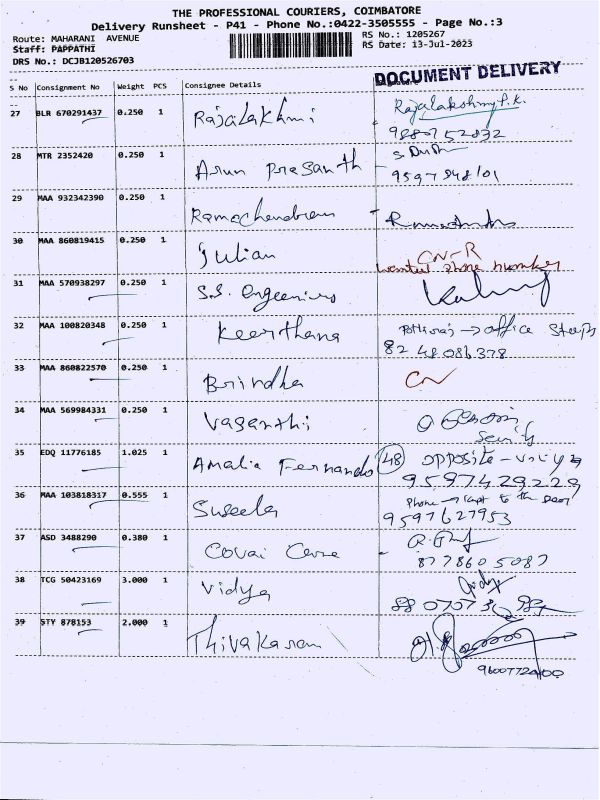 THE PROFESSIONAL COURIERS, COIMBATORE
Delivery Runsheet - P41 - Phone No.:0422-3505555 - Page No.:3
Route: MAHARANI AVENUE
RS No.: 1205267
Staff: PAPPATHI
RS Date: 13-Jul-2023
DRS No.: DCJB120526703
DOCUMENT DELIVERY
S No Consignment No Weight PCS Consignee Details
27 BLR 670291437 0.250 1 Rajalakhmi Rajalakshmy P.K.
28 MTR 2352420 0.250 1 Arun prasanth
29 MAA 932342390 0.250 1 Ramachandran
30 MAA 860819415 0.250 1 Julian CN-R
wanted phone number
31 MAA 570938297 0.250 1 S.S. engeeniers
32 MAA 100820348 0.250 1 Keerthana → office
82 48086378
33 MAA 860822570 0.250 1 Brindha CN
34 MAA 569984331 0.250 1 Vasanthi
35 EDQ 11776185 1.025 1 Amalia Fernando 48 opposite -
9597429229
36 MAA 103818317 0.555 1 Suseela Phone → kept to the door
9597627953
37 ASD 3488290 0.380 1 Covai Care
8778605087
38 TCG 50423169 3.000 1 Vidya
39 STY 878153 2.000 1 Thivakaran